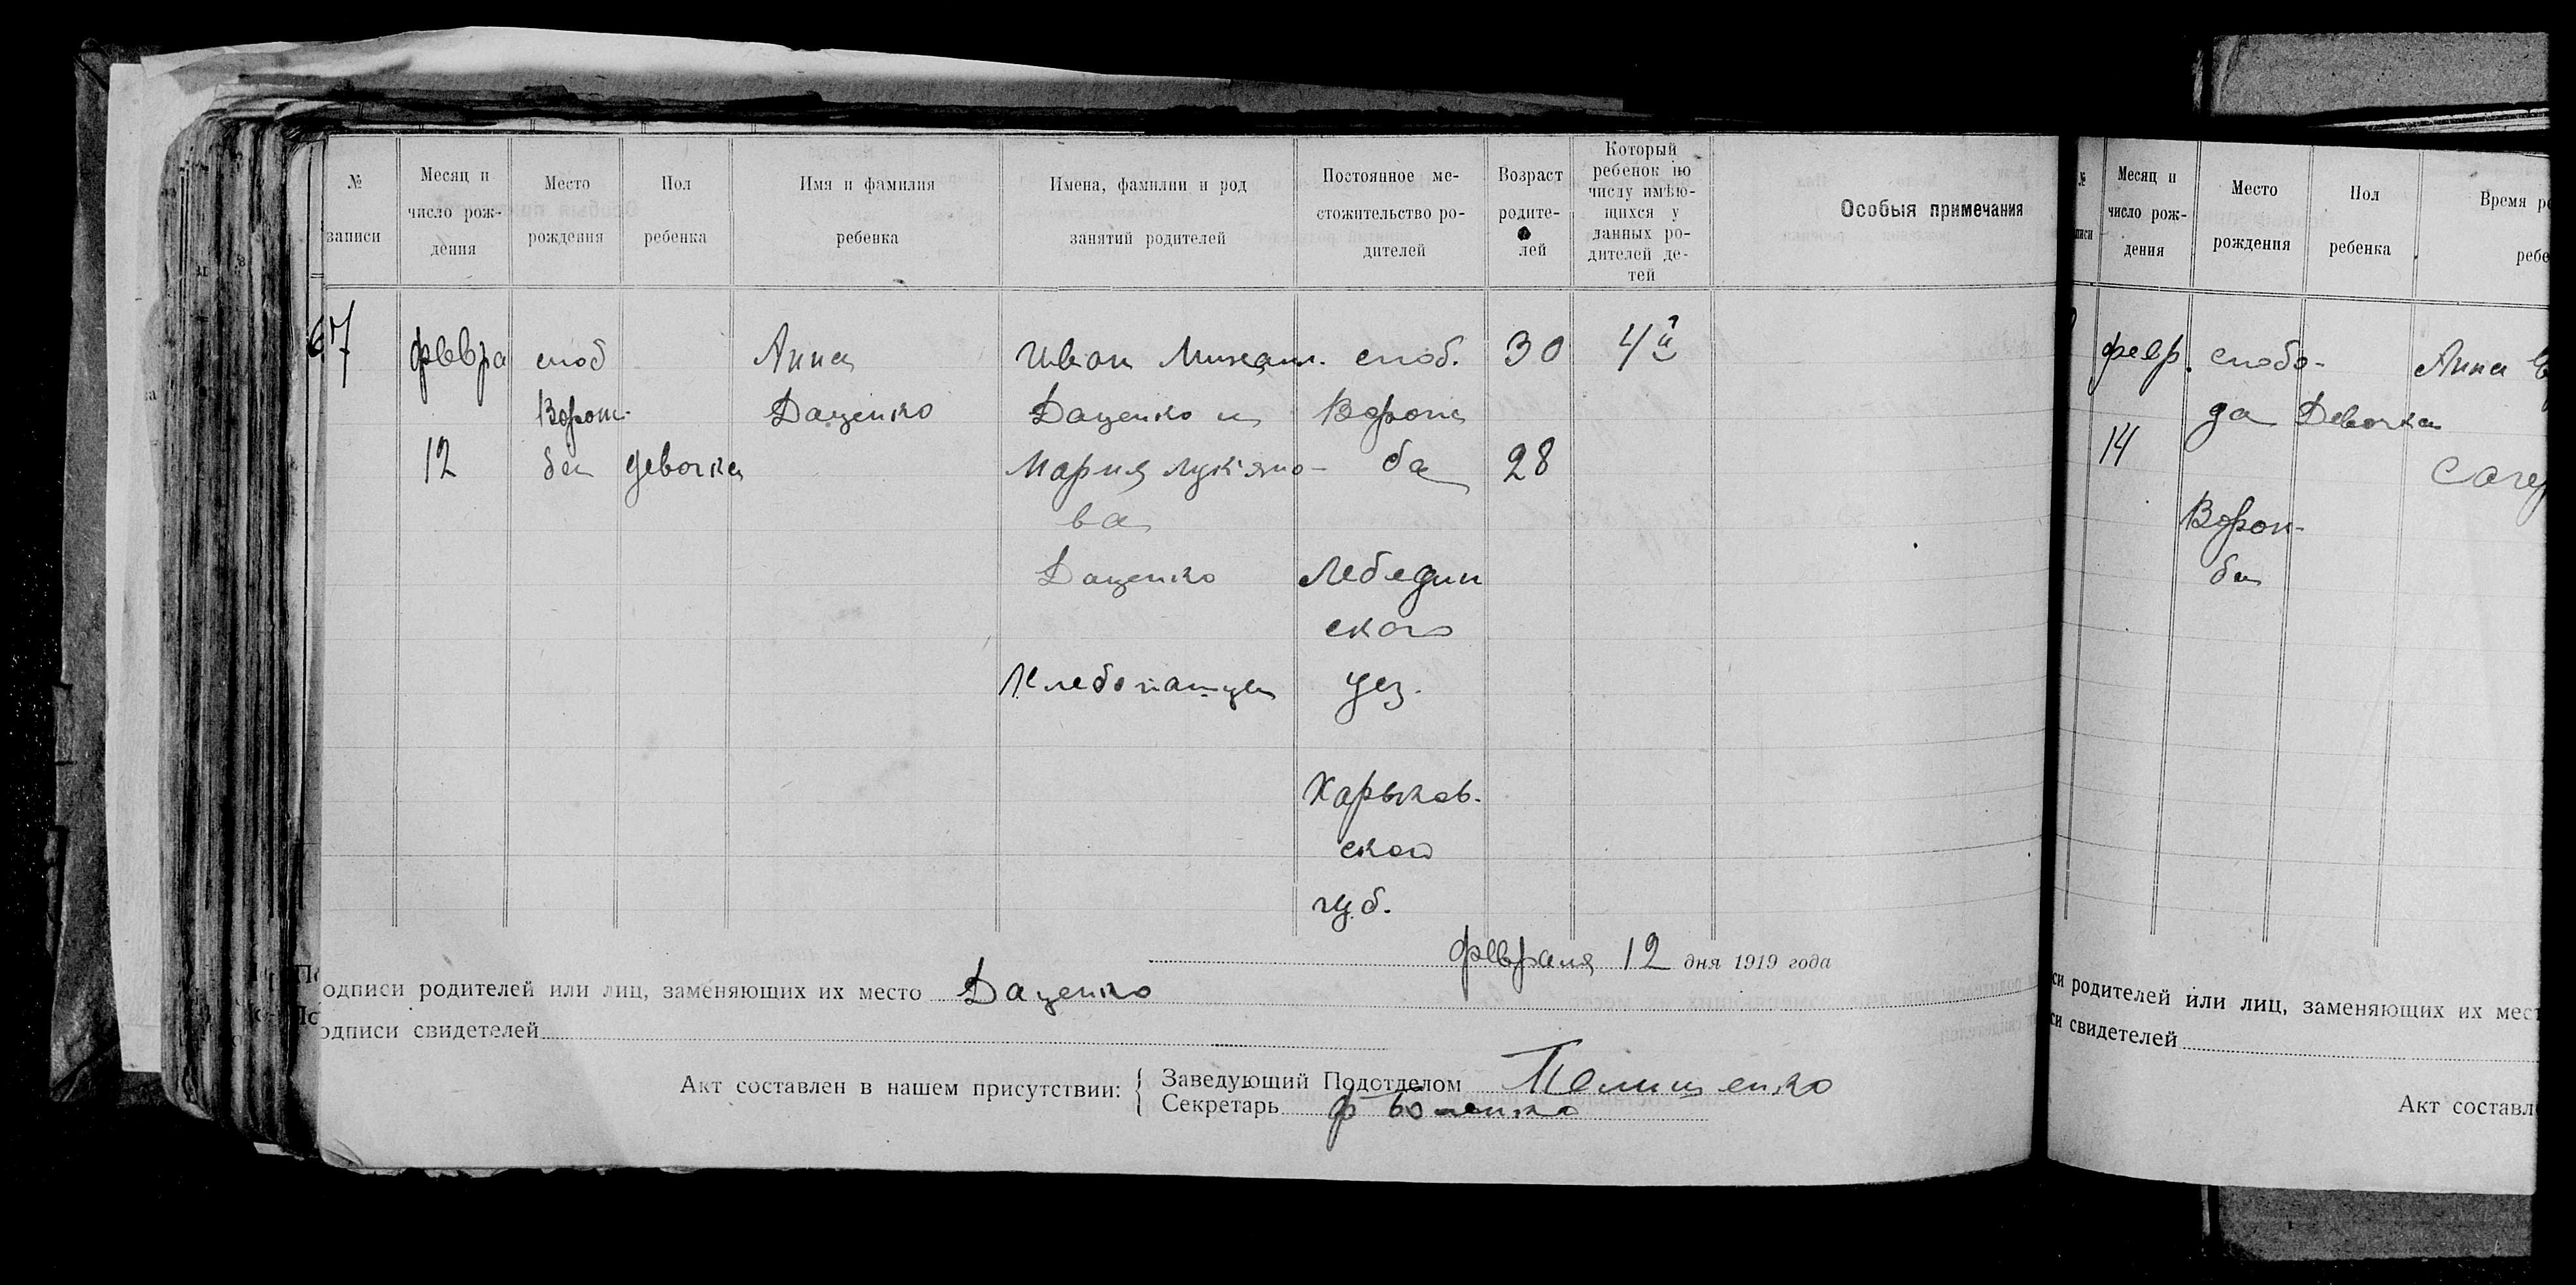 № записи
Месяц и число рож-дения
Место рождения
Пол ребенка
Имя и фамилия ребенка
Имена, фамилии и род занятий родителей
Постоянное ме-стожительство ро-дителей
Возраст родите-лей
Который ребенок по числу имѣю-щихся у данных ро-дителей де-тей
Особыя примечания
67
февра
12
слоб
Ворож-
ба
девочка
Анна
Даценко
Иван Михаил.
Даценко и
Мария Лукяно-
ва
Даценко
Хлебопашцы
слоб.
Ворож
ба
Лебедин
ского
уез.
Харьков.
ского
губ.
30
28
4й
февраля 12 дня 1919 года
Подписи родителей или лиц, заменяющих их место Даценко
Подписи свидетелей
Акт составлен в нашем присутствии:
Заведующий Подотделом
Секретарь
№
Месяц и число рож-дения
Место рождения
Пол ребенка
Время
ребе
февр.
14
слобо-
да
Ворож-
ба
Девочка
Анна
си родителей или лиц, заменяющих их мест
си свидетелей
Акт составл